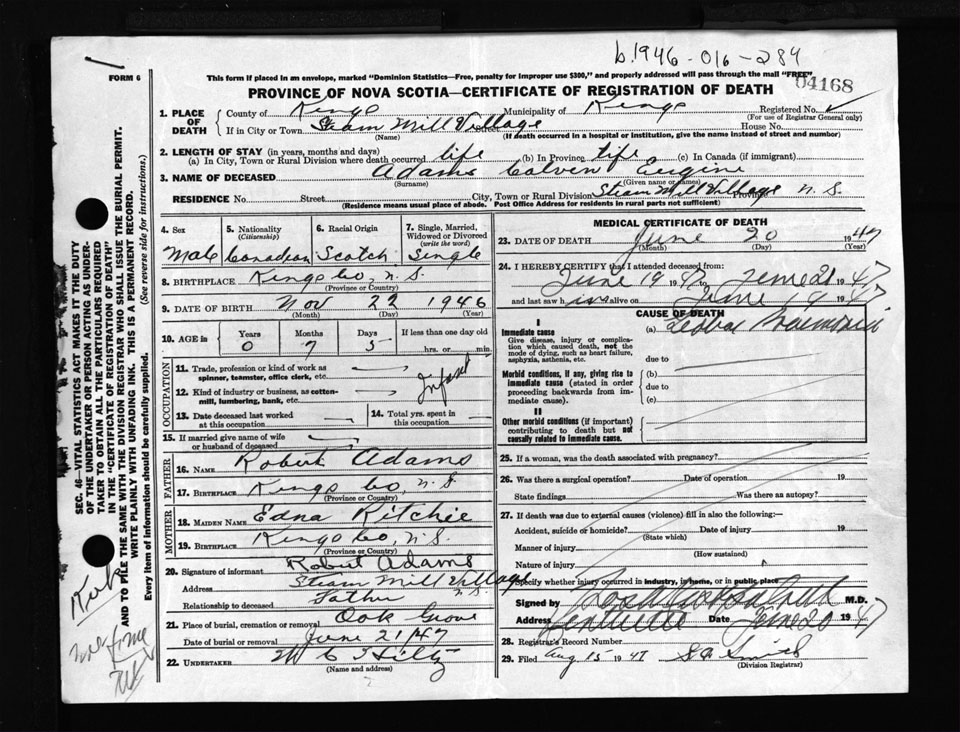 b.1946-016-284
FORM 6
This form if placed in an envelope, marked "Dominion Statistics—Free, penalty for improper use $300," and properly addressed will pass through the mail "FREE"
04168
PROVINCE OF NOVA SCOTIA—CERTIFICATE OF REGISTRATION OF DEATH
1. PLACE OF DEATH County of Kings Municipality of Kings Registered No.
(For use of Registrar General only)
If in City or Town Steam Mill Village Street House No.
(Name) (If death occurred in a hospital or institution, give the name instead of street and number)
2. LENGTH OF STAY (in years, months and days)
(a) In City, Town or Rural Division where death occurred life (b) In Province life (c) In Canada (if immigrant)
3. NAME OF DECEASED Adams Calvin Eugine
(Surname) (Given name or names)
RESIDENCE No. Street City, Town or Rural Division Steam Mill Village Province N.S.
(Residence means usual place of abode. Post Office Address for residents in rural parts not sufficient)
SEC. 46—VITAL STATISTICS ACT MAKES IT THE DUTY
OF THE UNDERTAKER OR PERSON ACTING AS UNDER-
TAKER TO OBTAIN ALL THE PARTICULARS REQUIRED
IN THE "CERTIFICATE OF REGISTRATION OF DEATH"
AND TO FILE THE SAME WITH THE DIVISION REGISTRAR WHO SHALL ISSUE THE BURIAL PERMIT.
WRITE PLAINLY WITH UNFADING INK. THIS IS A PERMANENT RECORD.
Every item of information should be carefully supplied. (See reverse side for instructions.)
4. Sex 5. Nationality (Citizenship) 6. Racial Origin 7. Single, Married, Widowed or Divorced (write the word)
Male Canadian Scotch Single
8. BIRTHPLACE Kings Co, N.S.
(Province or Country)
9. DATE OF BIRTH Nov 22 1946
(Month) (Day) (Year)
10. AGE in Years Months Days If less than one day old
0 7 5 hrs. or min.
OCCUPATION
11. Trade, profession or kind of work as spinner, teamster, office clerk, etc.
12. Kind of industry or business, as cotten-mill, lumbering, bank, etc. Infant
13. Date deceased last worked at this occupation 14. Total yrs. spent in this occupation
15. If married give name of wife or husband of deceased
FATHER
16. NAME Robert Adams
17. BIRTHPLACE Kings Co, N.S.
(Province or Country)
MOTHER
18. MAIDEN NAME Edna Ritchie
19. BIRTHPLACE Kings Co, N.S.
(Province or Country)
20. Signature of informant Robert Adams
Address Steam Mill Village N.S.
Relationship to deceased Father
21. Place of burial, cremation or removal Oak Grove
Date of burial or removal June 21/47
22. UNDERTAKER W C Hiltz
(Name and address)
MEDICAL CERTIFICATE OF DEATH
23. DATE OF DEATH June 20 1947
(Month) (Day) (Year)
24. I HEREBY CERTIFY that I attended deceased from:
June 19 1947 to June 20 1947
and last saw him alive on June 19 1947
CAUSE OF DEATH
I
Immediate cause (a) Lobar Pneumonia
Give disease, injury or complication which caused death, not the mode of dying, such as heart failure, asphyxia, asthenia, etc.
due to
Morbid conditions, if any, giving rise to immediate cause (stated in order proceeding backwards from immediate cause). (b)
due to
(c)
II
Other morbid conditions (if important) contributing to death but not causally related to immediate cause.
25. If a woman, was the death associated with pregnancy?
26. Was there a surgical operation? Date of operation 19
State findings Was there an autopsy?
27. If death was due to external causes (violence) fill in also the following:—
Accident, suicide or homicide? Date of injury 19
(State which)
Manner of injury
(How sustained)
Nature of injury
Specify whether injury occurred in industry, in home, or in public place
Signed by M.D.
Address Kentville Date June 20 1947
28. Registrar's Record Number
29. Filed Aug 15 1947 Smith
(Division Registrar)